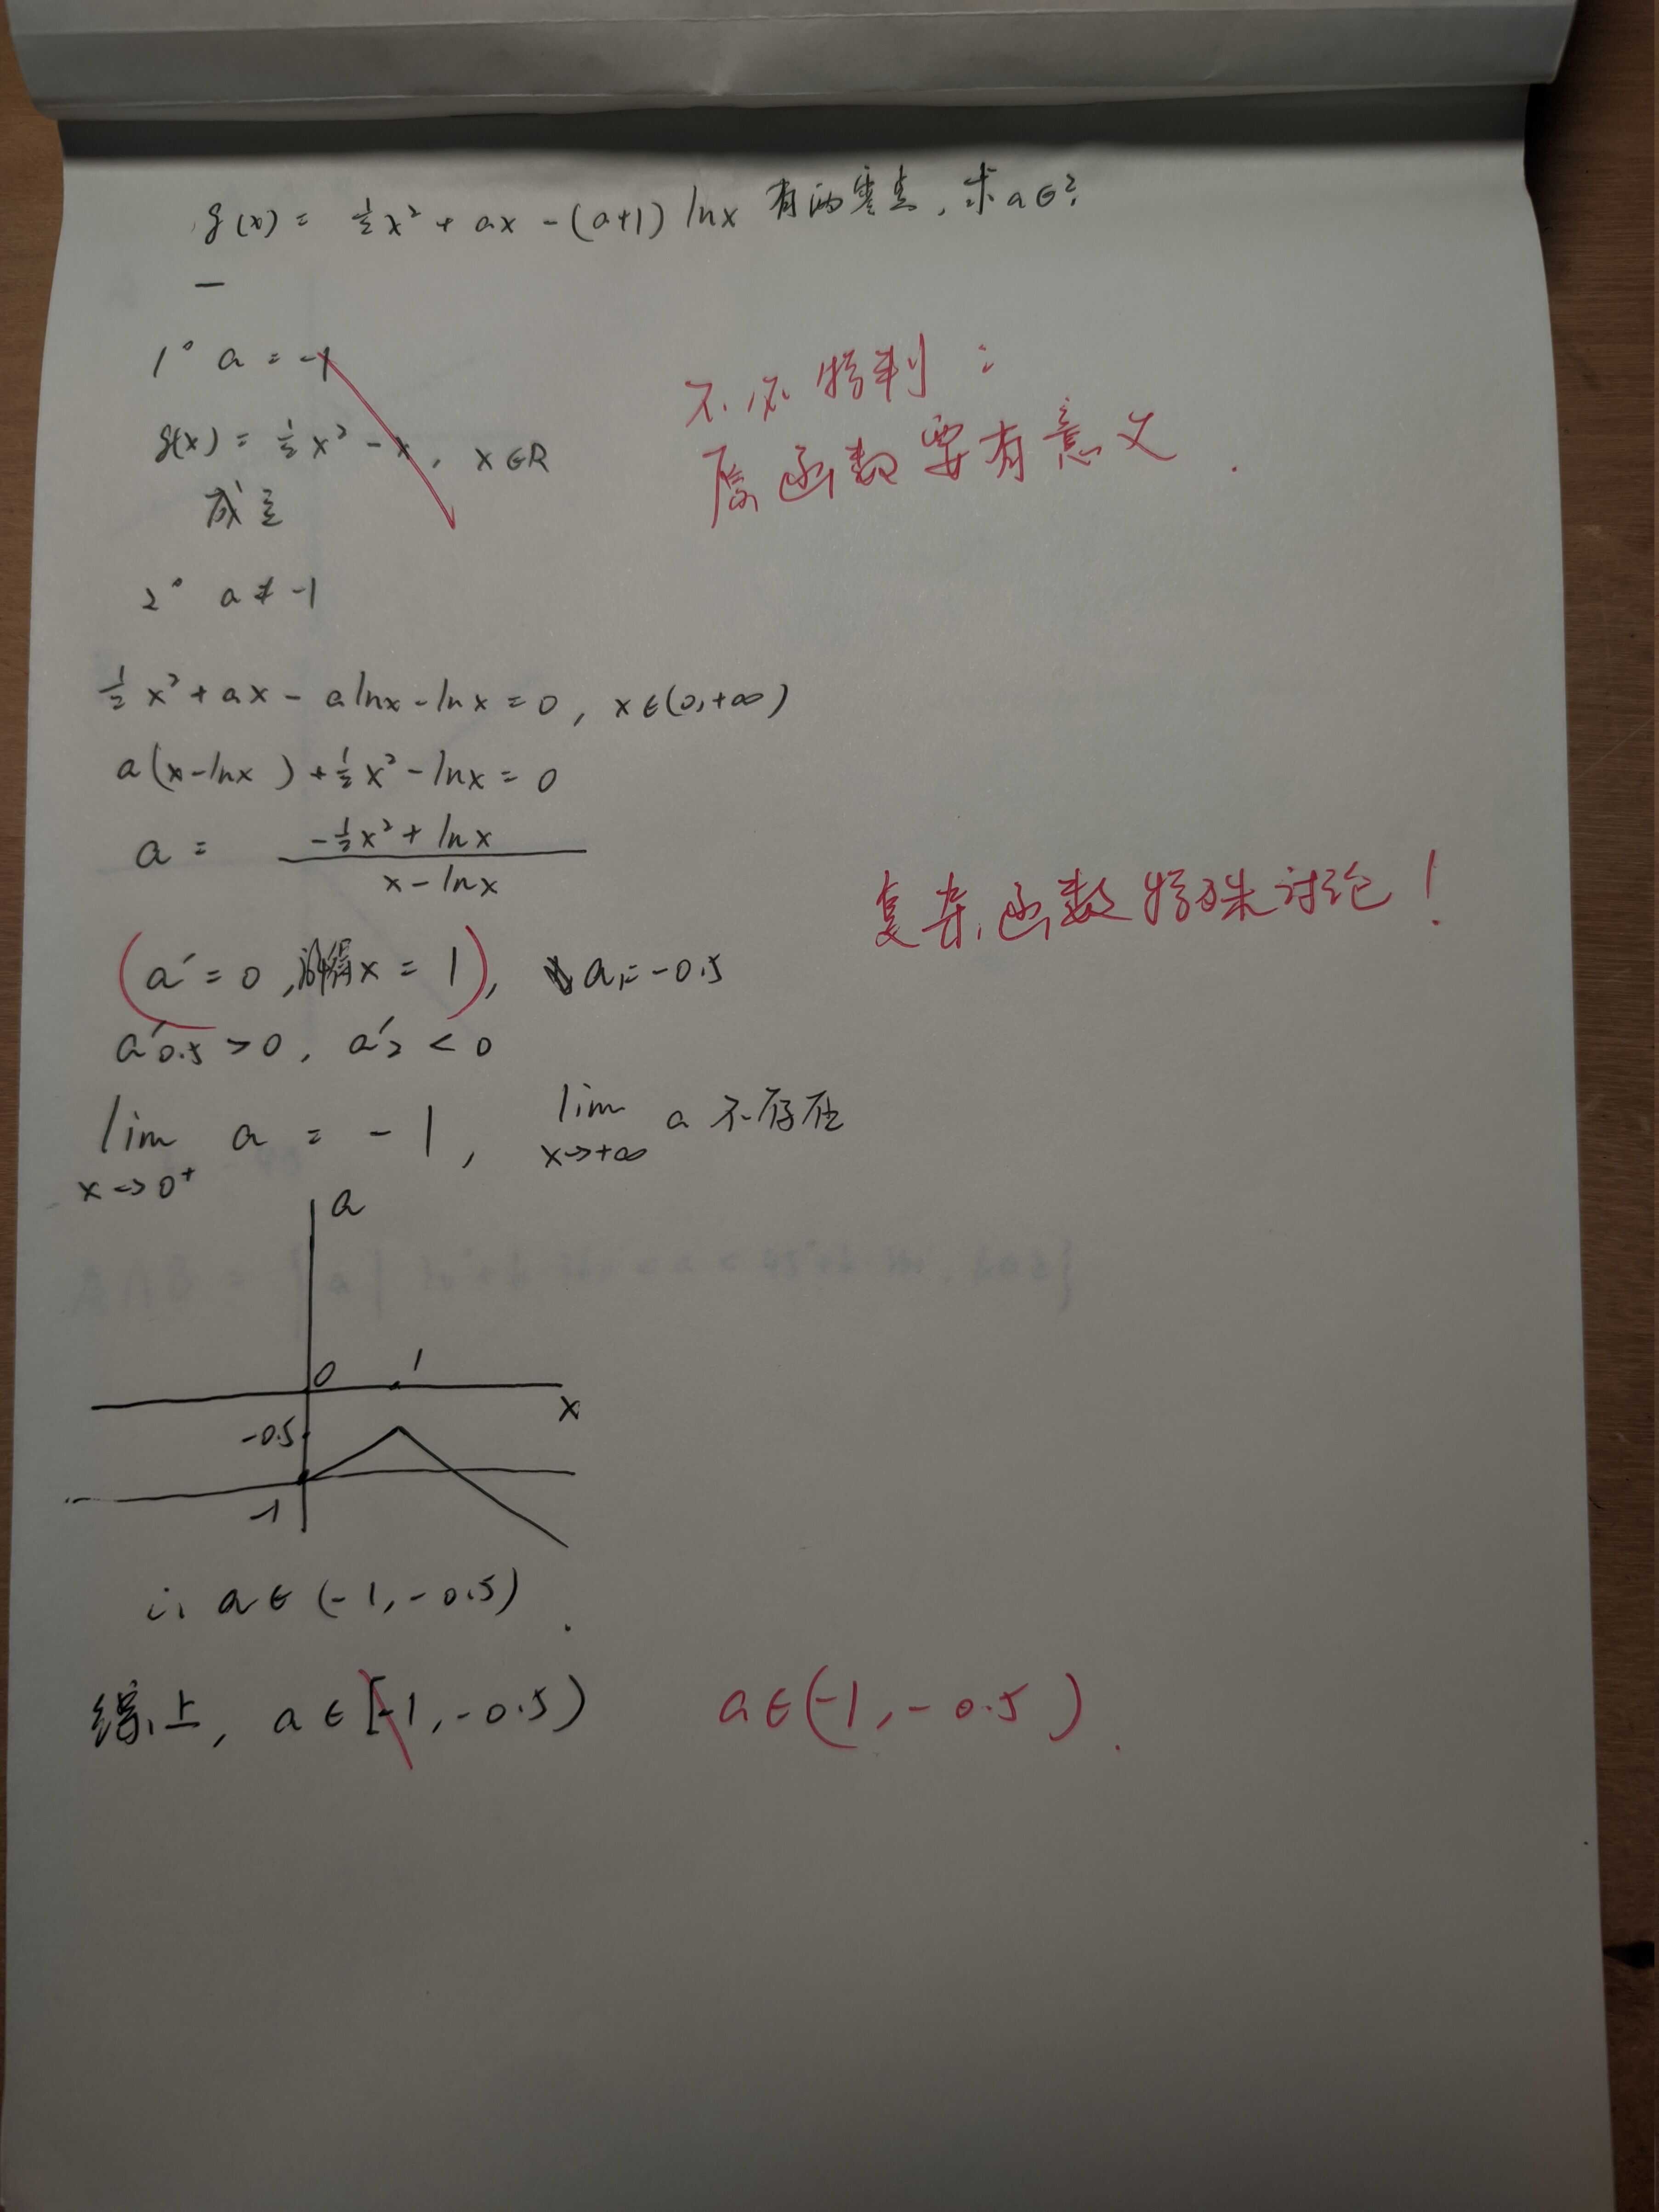 g(x) = ½x² + ax - (a+1) lnx 有两零点, 求a∈?
1° a = -1
不必特判:
g(x) = ½x² - x, x∈R
原函数要有意义.
成立
2° a ≠ -1
½x² + ax - alnx - lnx = 0, x∈(0,+∞)
a(x-lnx) + ½x² - lnx = 0
a = (-½x² + lnx)/(x - lnx)
复杂函数特殊讨论!
(a′ = 0, 解得x = 1), a₁ = -0.5
a′0.5 > 0, a′2 < 0
lim x→0⁺ a = -1, lim x→+∞ a 不存在
a
0 1
x
-0.5
-1
∴ a∈(-1,-0.5).
综上, a∈[-1,-0.5) a∈(-1,-0.5).